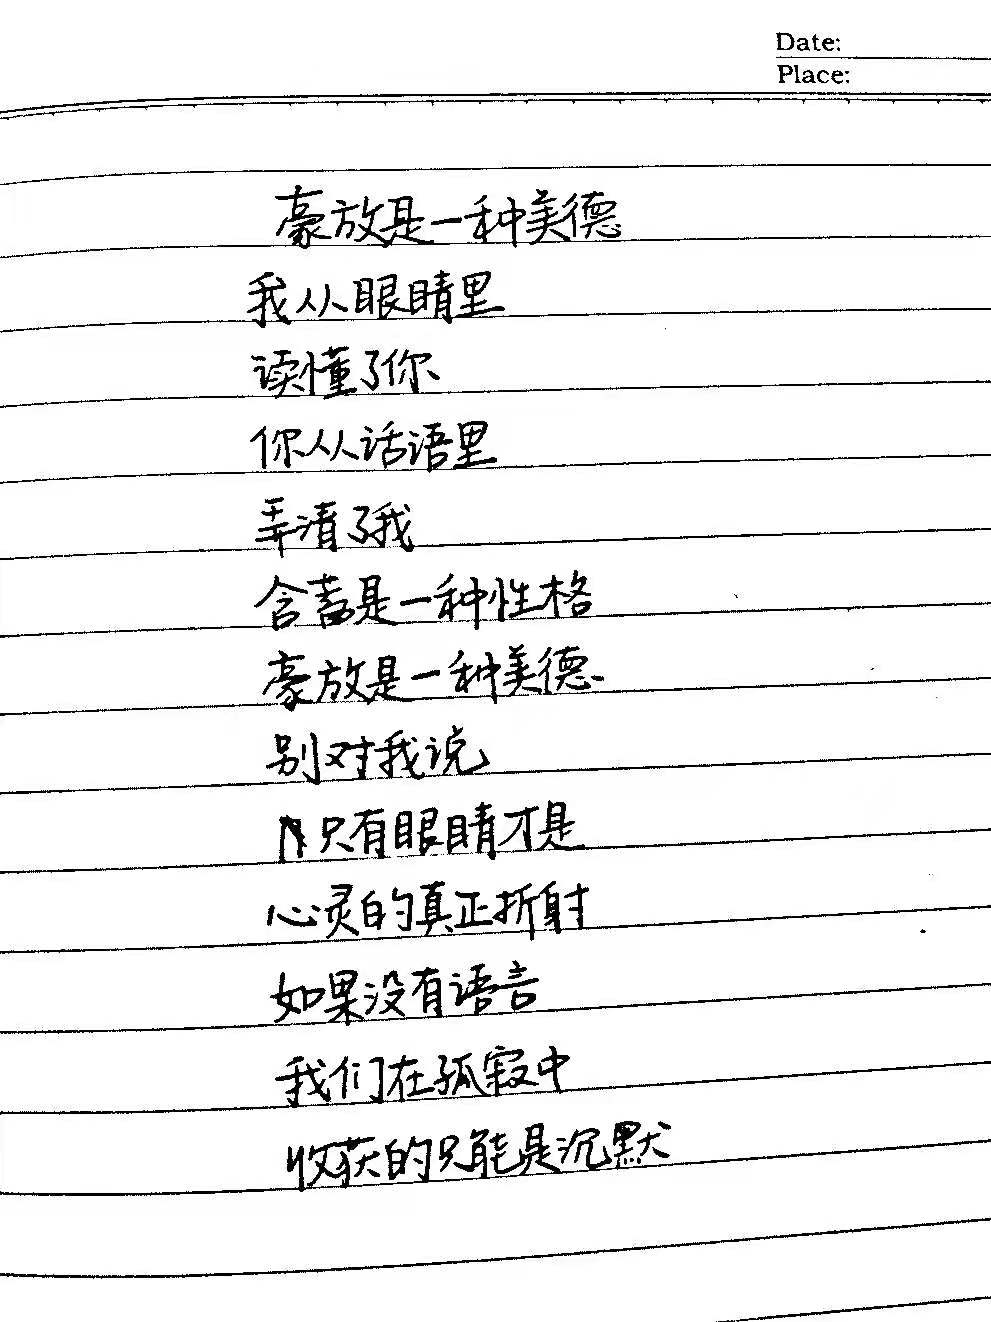 Date:
Place:
豪放是一种美德
我从眼睛里
读懂了你
你从话语里
弄清了我
含蓄是一种性格
豪放是一种美德
别对我说
只有眼睛才是
心灵的真正折射
如果没有语言
我们在孤寂中
收获的只能是沉默